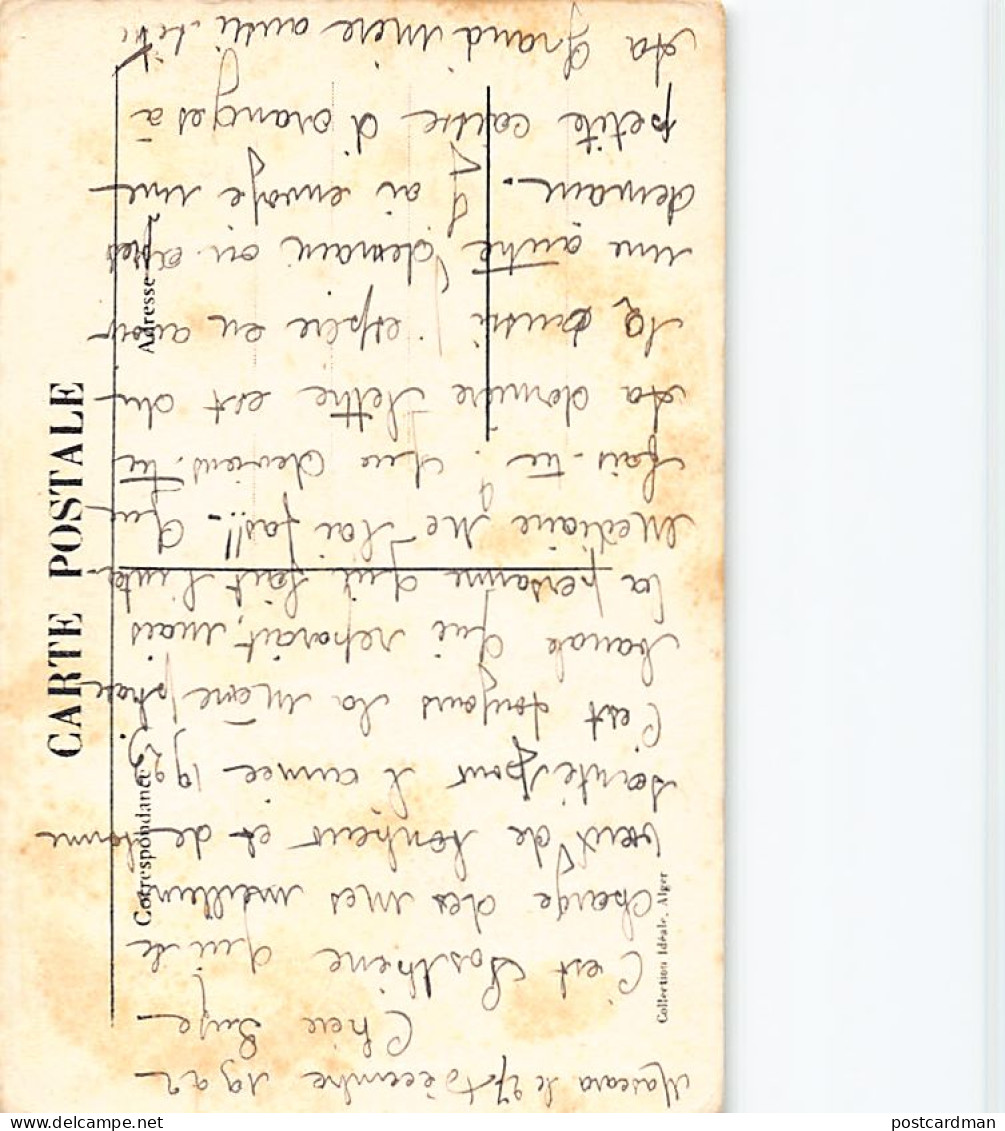 CARTE POSTALE
Correspondance
Adresse
Collection Idéale, Alger
Mascara le 27 Décembre 1922
Chère
C'est Sosthène qui te
charge des mes meilleurs
vœux de bonheur et de bonne
santé pour l'année 1923.
C'est toujours la même phrase
banale qui reparait, mais
la personne qui fait l'inter
médiaire ne l'ai pas!!! Que
fais-tu ? Que deviens-tu
ta dernière lettre est du
j'espère en avoir
une autre demain ou après
demain. J'ai envoyé une
petite caisse d'oranges à
ta grand mère
postcardman